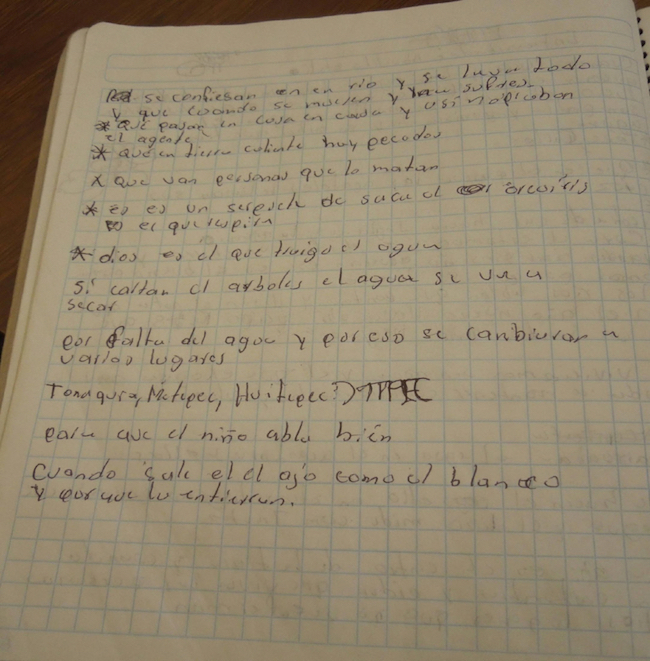 se confiesan en en rio y se lava todo
y que cuando se mueren y sufres.
* que pasan en casa en casa y asi
el agente
* que en tierra caliente huy pecados
x que van personas que lo matan
* es es un de saca el
es el que
* dios es el que traiga el agua
si cartan el arboles el agua se va a
secar
por falta del agua y por eso se canbiaran a
varias lugares
Metepec, Huitepec
para que el niño abla bien
Cuando sale el el ajo como el blanco
y por que lo entierran.